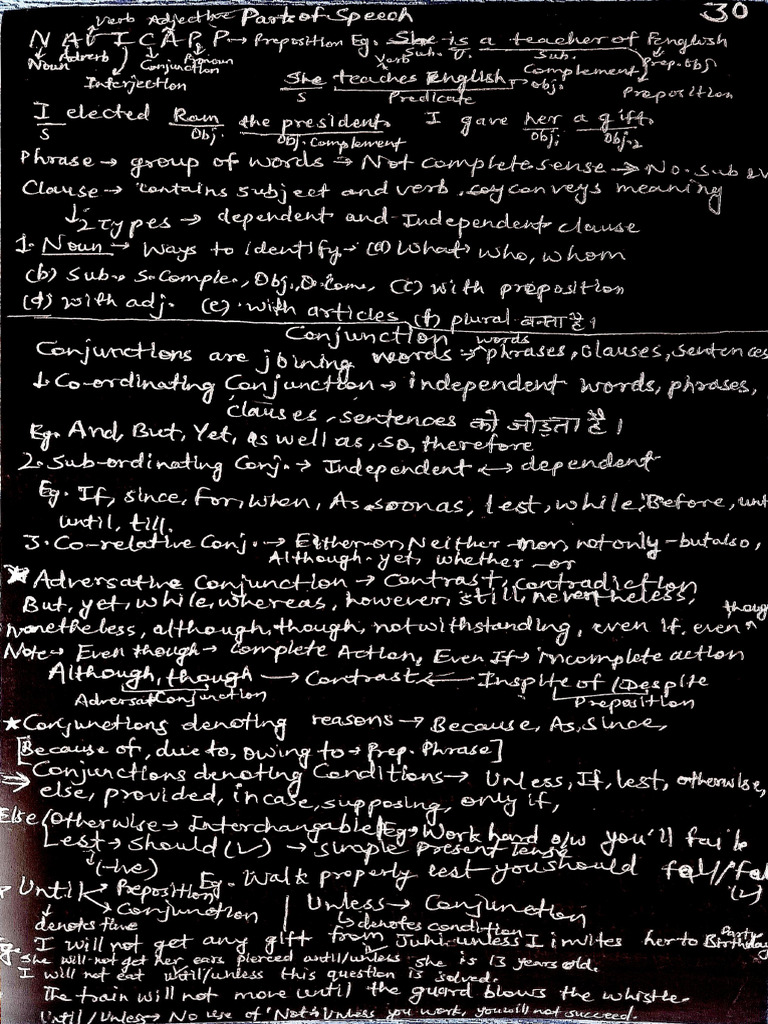 Verb Adjective Parts of Speech 30
N A V I C A P P → Preposition Eg. She is a teacher of English
Noun Adverb Conjunction Pronoun Verb Sub. V. Sub. Complement Prep. Obj
Interjection She teaches English → Obj. Preposition
S Predicate
I elected Ram the president. I gave her a gift.
S Obj. Obj. Complement Obj. Obj. 2
Phrase → group of words → Not complete sense → No. sub &v
Clause → contains subject and verb. conveys meaning
↓ 2 Types → dependent and Independent clause
1. Noun → Ways to identify → (a) What, who, whom
(b) Sub → S. Comple., Obj., O. Com., (c) with preposition
(d) with adj. (e) with articles (f) plural बनता है।
Conjunction
Conjunctions are joining words → words phrases, clauses, sentences
1. Co-ordinating Conjunction → independent words, phrases,
clauses, sentences को जोड़ता है।
Eg. And, But, Yet, as well as, so, therefore
2. Sub-ordinating Conj. → Independent ↔ dependent
Eg. If, since, for, when, As soon as, lest, while, Before,
until, till.
3. Co-relative Conj. → Either-or, Neither-nor, not only-but also,
Although-yet, whether-or
★ Adversative Conjunction → Contrast, Contradiction
But, yet, while, whereas, however, still, nevertheless,
Nonetheless, although, though, notwithstanding, even if, even though
Note → Even though → complete Action, Even If → incomplete action
Although, though → Contrast ← Inspite of / Despite
Adversat Conjunction Preposition
★ Conjunctions denoting reasons → Because, As, Since,
[Because of, due to, owing to → Prep. Phrase]
⇒ Conjunctions denoting Conditions → Unless, If, lest, otherwise,
else, provided, in case, supposing, only if,
Else/Otherwise → Interchangable Eg → Work hard o/w you'll fail
Lest → should (V) → simple Present Tense
↓ (-ve) Eg. Walk properly lest you should fall/
(V)
Until < Preposition Conjunction | Unless → Conjunction
↓ denotes time ↳ denotes condition
Eg. I will not get any gift from Juhi unless I invites her to Birthday Party
She will not get her ears pierced until/unless she is 13 years old.
I will not eat until/unless this question is solved.
The train will not move until the guard blows the whistle.
Until/Unless → No use of 'Not' Unless you work, you will not succeed.